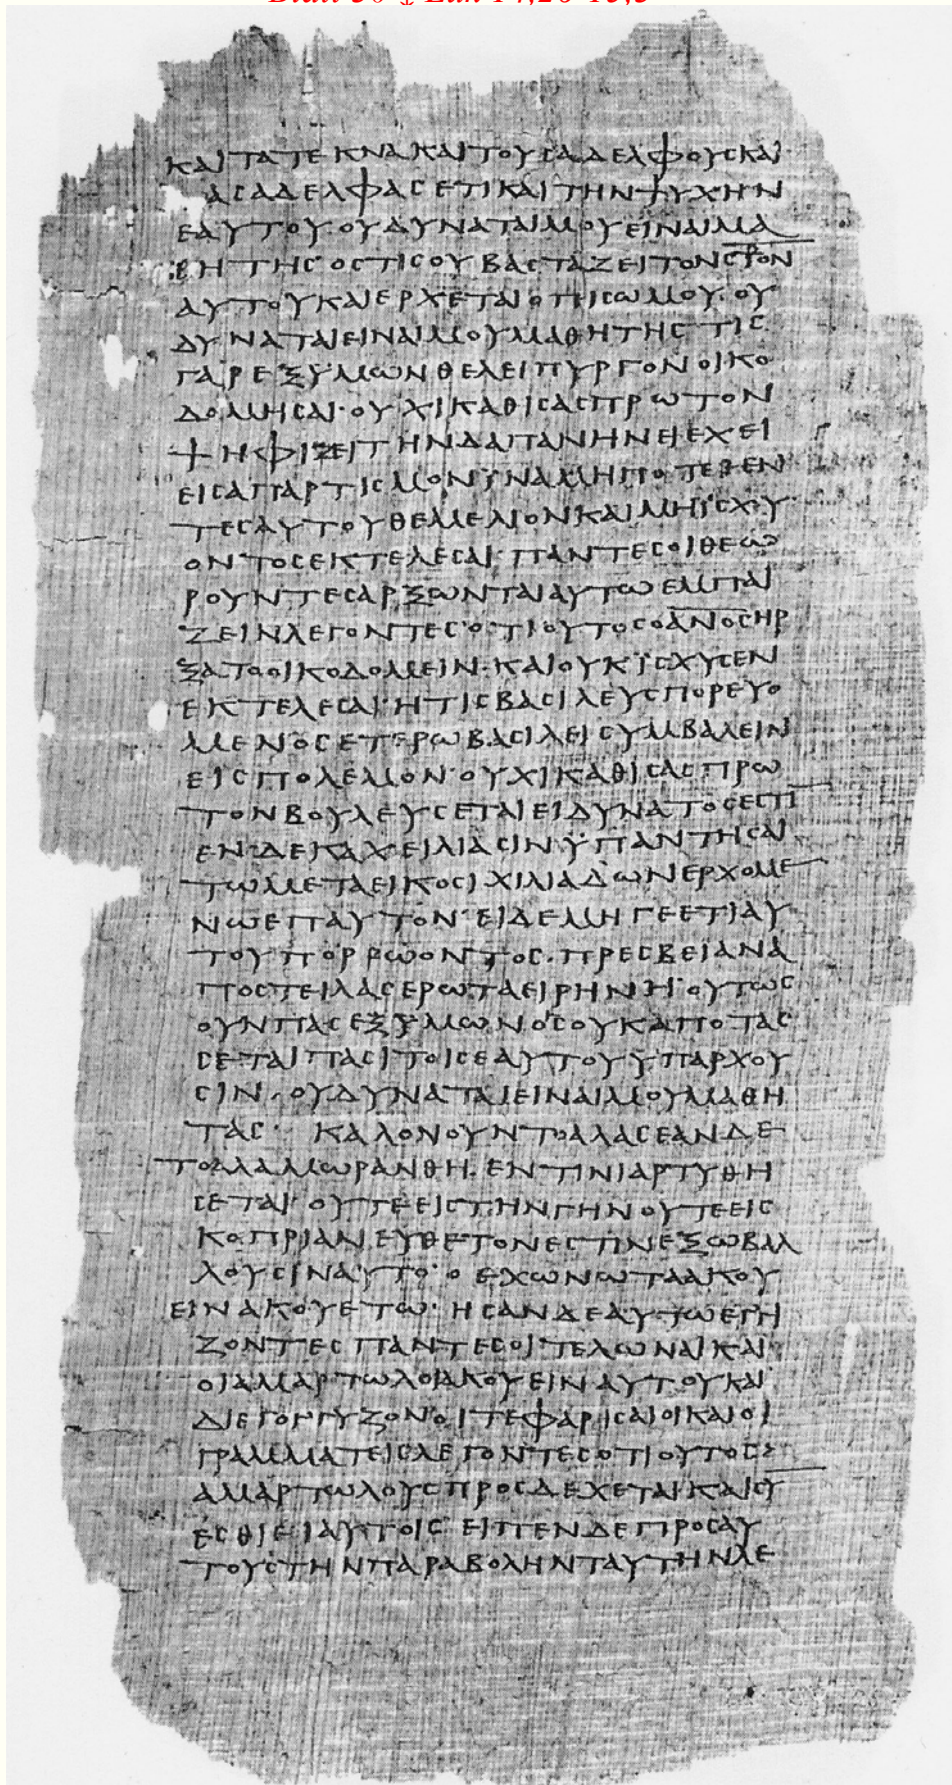 Blatt 50 ↓ Luk 14,26-15,3
ΚΑΙ ΤΑ ΤΕΚΝΑ ΚΑΙ ΤΟΥΣ ΑΔΕΛΦΟΥΣ ΚΑΙ
ΑΣ ΑΔΕΛΦΑΣ ΕΤΙ ΚΑΙ ΤΗΝ ΨΥΧΗΝ
ΕΑΥΤΟΥ· ΟΥ ΔΥΝΑΤΑΙ ΜΟΥ ΕΙΝΑΙ ΜΑ
ΘΗΤΗΣ· ΟΣΤΙΣ ΟΥ ΒΑΣΤΑΖΕΙ ΤΟΝ Σ̅⳨̅Ο̅Ν̅
ΑΥΤΟΥ ΚΑΙ ΕΡΧΕΤΑΙ ΟΠΙΣΩ ΜΟΥ· ΟΥ
ΔΥΝΑΤΑΙ ΕΙΝΑΙ ΜΟΥ ΜΑΘΗΤΗΣ ΤΙΣ
ΓΑΡ ΕΞ ΥΜΩΝ ΘΕΛΕΙ ΠΥΡΓΟΝ ΟΙΚΟ
ΔΟΜΗΣΑΙ· ΟΥΧΙ ΚΑΘΙΣΑΣ ΠΡΩΤΟΝ
ΨΗΦΙΖΕΙ ΤΗΝ ΔΑΠΑΝΗΝ ΕΙ ΕΧΕΙ
ΕΙΣ ΑΠΑΡΤΙΣΜΟΝ ΪΝΑ ΜΗΠΟΤΕ ΘΕΝ
ΤΕΣ ΑΥΤΟΥ ΘΕΜΕΛΙΟΝ ΚΑΙ ΜΗ ΪΣΧΥ
ΟΝΤΟΣ ΕΚΤΕΛΕΣΑΙ· ΠΑΝΤΕΣ ΟΙ ΘΕΩ
ΡΟΥΝΤΕΣ ΑΡΞΩΝΤΑΙ ΑΥΤΩ ΕΜΠΑΙ
ΖΕΙΝ ΛΕΓΟΝΤΕΣ· ΟΤΙ ΟΥΤΟΣ Ο Α̅Ν̅Ο̅Σ̅ ΗΡ
ΞΑΤΟ ΟΙΚΟΔΟΜΕΙΝ· ΚΑΙ ΟΥΚ ΪΣΧΥΣΕΝ
ΕΚΤΕΛΕΣΑΙ· Η ΤΙΣ ΒΑΣΙΛΕΥΣ ΠΟΡΕΥΟ
ΜΕΝΟΣ ΕΤΕΡΩ ΒΑΣΙΛΕΙ ΣΥΜΒΑΛΕΙΝ
ΕΙΣ ΠΟΛΕΜΟΝ· ΟΥΧΙ ΚΑΘΙΣΑΣ ΠΡΩ
ΤΟΝ ΒΟΥΛΕΥΣΕΤΑΙ ΕΙ ΔΥΝΑΤΟΣ ΕΣΤΙ
ΕΝ ΔΕΚΑ ΧΕΙΛΙΑΣΙΝ ΫΠΑΝΤΗΣΑΙ
ΤΩ ΜΕΤΑ ΕΙΚΟΣΙ ΧΙΛΙΑΔΩΝ ΕΡΧΟΜΕ
ΝΩ ΕΠ ΑΥΤΟΝ· ΕΙ ΔΕ ΜΗ ΓΕ ΕΤΙ ΑΥ
ΤΟΥ ΠΟΡΡΩ ΟΝΤΟΣ· ΠΡΕΣΒΕΙΑΝ Α
ΠΟΣΤΕΙΛΑΣ ΕΡΩΤΑ ΕΙΡΗΝΗ· ΟΥΤΩΣ
ΟΥΝ ΠΑΣ ΕΞ ΫΜΩΝ ΟΣ ΟΥΚ ΑΠΟΤΑΣ
ΣΕΤΑΙ ΠΑΣΙ ΤΟΙΣ ΕΑΥΤΟΥ ΫΠΑΡΧΟΥ
ΣΙΝ· ΟΥ ΔΥΝΑΤΑΙ ΕΙΝΑΙ ΜΟΥ ΜΑΘΗ
ΤΑΣ· ΚΑΛΟΝ ΟΥΝ ΤΟ ΑΛΑΣ ΕΑΝ ΔΕ
ΤΟ ΑΛΑ ΜΩΡΑΝΘΗ· ΕΝ ΤΙΝΙ ΑΡΤΥΘΗ
ΣΕΤΑΙ· ΟΥΤΕ ΕΙΣ ΤΗΝ ΓΗΝ ΟΥΤΕ ΕΙΣ
ΚΟΠΡΙΑΝ ΕΥΘΕΤΟΝ ΕΣΤΙΝ ΕΞΩ ΒΑΛ
ΛΟΥΣΙΝ ΑΥΤΟ· Ο ΕΧΩΝ ΩΤΑ ΑΚΟΥ
ΕΙΝ ΑΚΟΥΕΤΩ· ΗΣΑΝ ΔΕ ΑΥΤΩ ΕΓΓΙ
ΖΟΝΤΕΣ ΠΑΝΤΕΣ ΟΙ ΤΕΛΩΝΑΙ ΚΑΙ
ΟΙ ΑΜΑΡΤΩΛΟΙ ΑΚΟΥΕΙΝ ΑΥΤΟΥ ΚΑΙ
ΔΙΕΓΟΓΓΥΖΟΝ ΟΙ ΤΕ ΦΑΡΙΣΑΙΟΙ ΚΑΙ ΟΙ
ΓΡΑΜΜΑΤΕΙΣ ΛΕΓΟΝΤΕΣ ΟΤΙ ΟΥΤΟΣ
ΑΜΑΡΤΩΛΟΥΣ ΠΡΟΣΔΕΧΕΤΑΙ ΚΑΙ ΣΥ
ΕΣΘΙΕΙ ΑΥΤΟΙΣ ΕΙΠΕΝ ΔΕ ΠΡΟΣ ΑΥ
ΤΟΥΣ ΤΗΝ ΠΑΡΑΒΟΛΗΝ ΤΑΥΤΗΝ ΛΕ